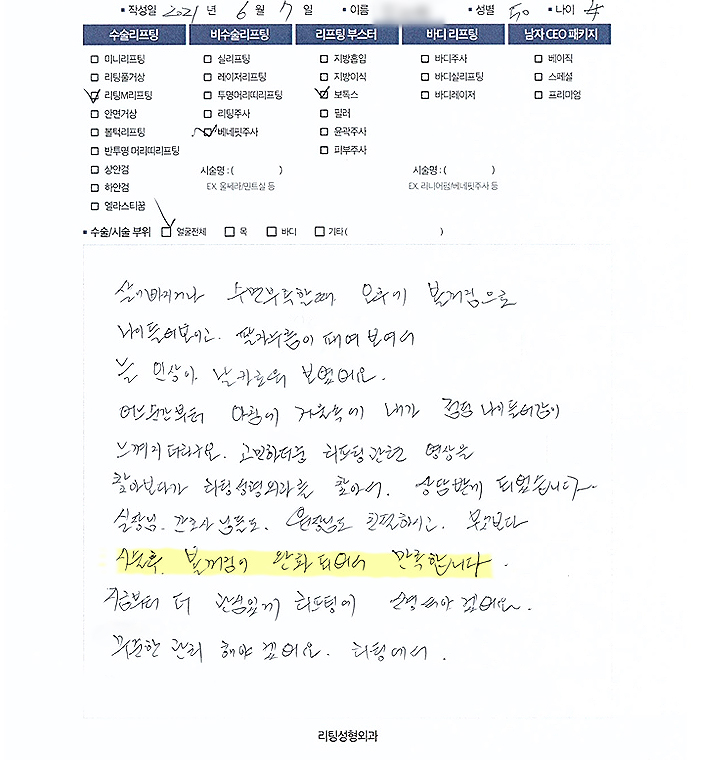 • 작성일 2021 년 6 월 7 일 • 이름 • 성별 50 • 나이 女
수술리프팅 비수술리프팅 리프팅 부스터 바디 리프팅 남자 CEO 패키지
미니리프팅 실리프팅 지방흡입 바디주사 베이직
리팅풀거상 레이저리프팅 지방이식 바디실리프팅 스페셜
리팅M리프팅 투명머리띠리프팅 보톡스 바디레이저 프리미엄
안면거상 리팅주사 필러
볼턱리프팅 베네핏주사 윤곽주사
반투명 머리띠리프팅 피부주사
상안검 시술명 : ( ) 시술명 : ( )
하안검 EX. 울쎄라/민트실 등 EX. 리니어펌/베네핏주사 등
엘라스티꿈
• 수술/시술 부위 얼굴전체 목 바디 기타 ( )
살이빠지거나 수면부족할때 오후가 볼꺼짐으로
나이들어보이고. 팔자주름이 패여 보여서
늘 인상이 날카로워 보였어요.
어느순간부터 아침에 거울속에 내가 점점 나이들어감이
느껴지더라구요. 고민하더중 리프팅관련 영상을
찾아보다가 리팅성형외과를 찾아서. 상담받게 되었습니다.
실장님. 간호사님들도. 원장님도 친절하시고. 무엇보다
시술후. 볼꺼짐이 완화되어서 만족합니다.
지금부터 더 관심있게 리프팅에 신경써야 겠어요.
꾸준한 관리 해야 겠어요. 리팅에서.
리팅성형외과